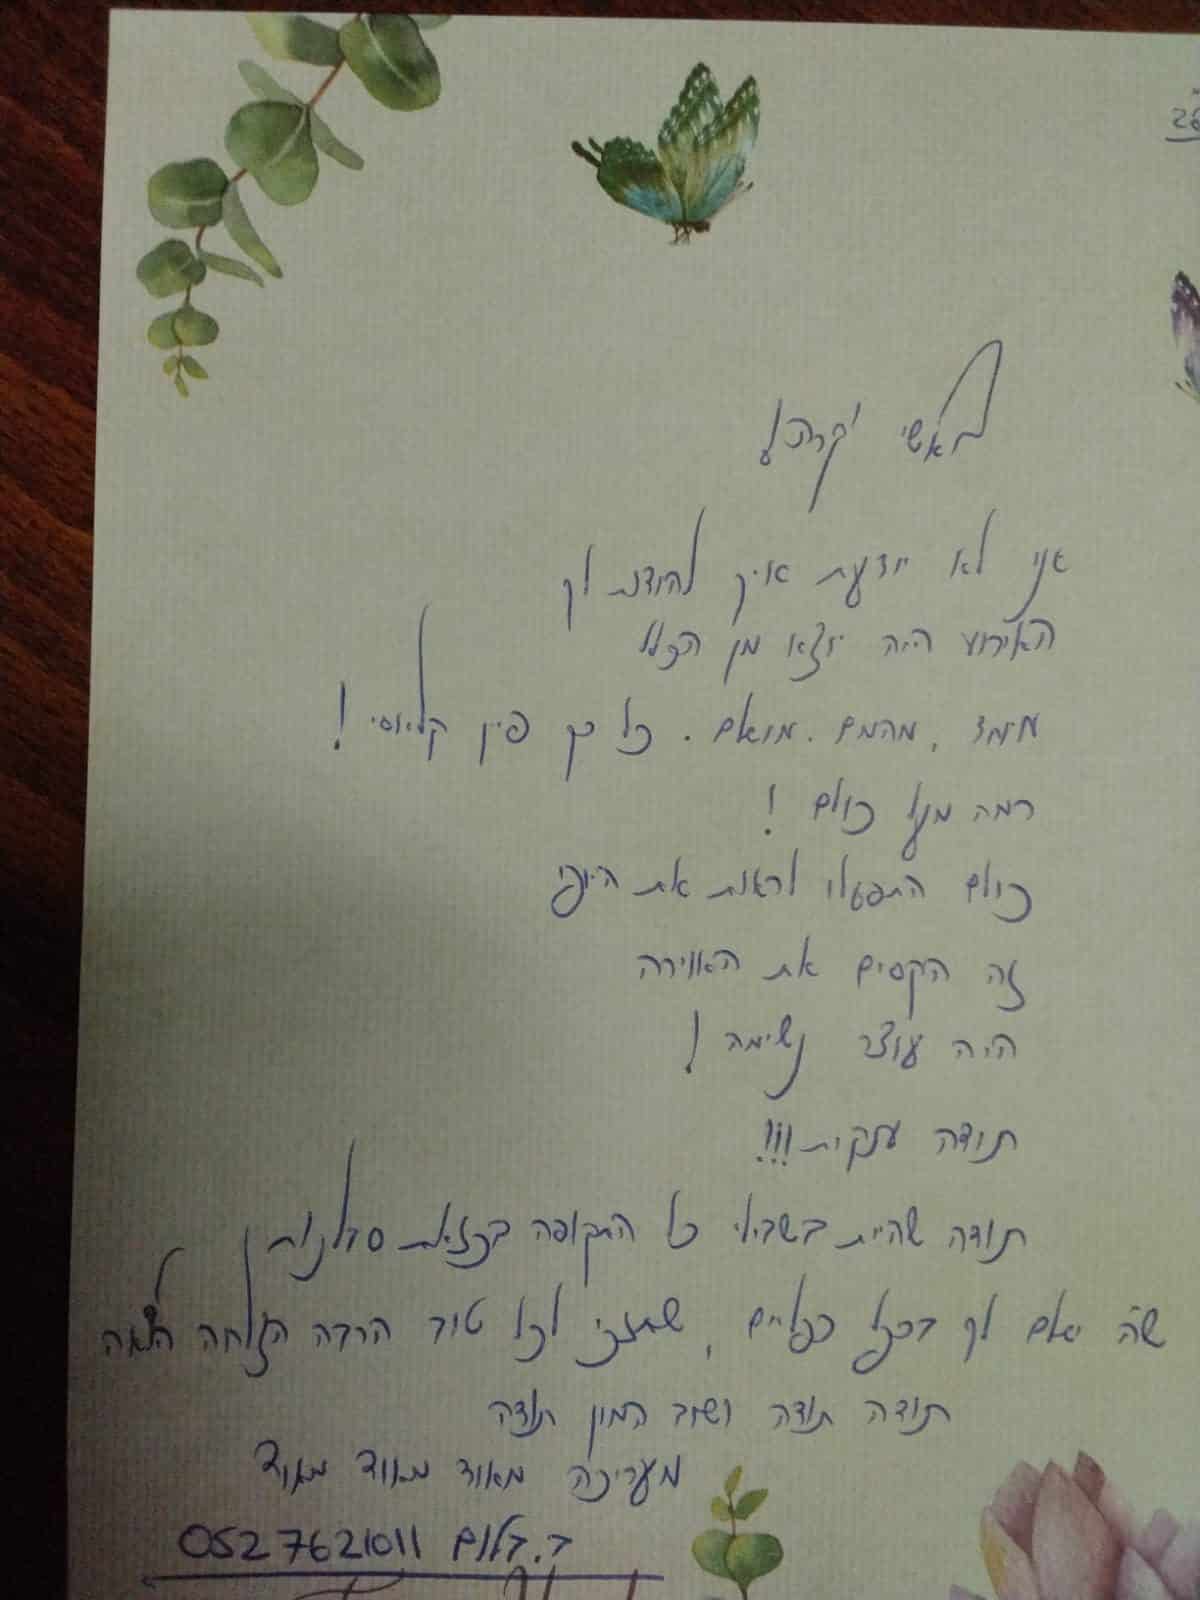 בס"ד
לאשי יקרה!
אני לא יודעת איך להודות לך
האירוע היה יוצא מן הכלל
עימד, מהמם. מואם. כל כך פיין קליוסי!
רמה מעל כולם!
כולם התפעלו לראות את היופי
זה הקסים את האווירה
היה עוצר נשימה!
תודה ענקית!!!
תודה שהיית בשבילי כל התקופה בכזאת סבלנות
שה' ישלם לך בכפל כפליים, שתזכי לכל טוב הרבה הצלחה הלאה
תודה תודה ושוב המון תודה
מעריכה מאוד מאוד מאוד
ב. בלום 0527621011